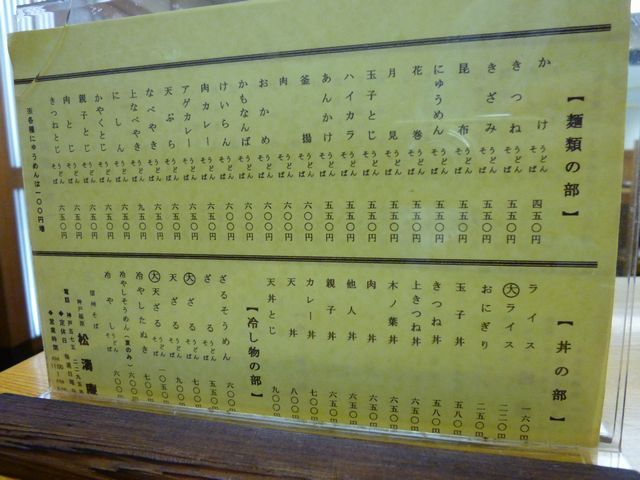 【麺類の部】
かけ うどん そば 四五〇円
きつね うどん そば 五五〇円
きざみ うどん そば 五五〇円
昆布 うどん そば 五五〇円
にゅうめん 五五〇円
花巻 うどん そば 五五〇円
月見 うどん そば 五五〇円
玉子とじ うどん そば 五五〇円
ハイカラ うどん そば 五五〇円
あんかけ うどん そば 五五〇円
釜揚 うどん そば 六〇〇円
肉 うどん そば 六〇〇円
おかめ うどん そば 六〇〇円
かもなんば うどん そば 六〇〇円
けいらん うどん そば 六〇〇円
肉カレー うどん そば 六五〇円
アゲカレー うどん そば 六五〇円
天ぷら うどん そば 六五〇円
なべやき うどん そば 六五〇円
上なべやき うどん そば 九五〇円
にしん うどん そば 六五〇円
かやくとじ うどん そば 六五〇円
親子とじ うどん そば 六五〇円
肉とじ うどん そば 六五〇円
きつねとじ うどん そば 六五〇円
※各種にゅうめんは一〇〇円増
【丼の部】
ライス 一六〇円
大ライス 二二〇円
おにぎり 二五〇円
玉子丼 五五〇円
きつね丼 五八〇円
上きつね丼 六五〇円
木ノ葉丼 六五〇円
肉丼 六五〇円
他人丼 六五〇円
親子丼 六五〇円
カレー丼 七〇〇円
天丼 八〇〇円
天丼とじ 九〇〇円
【冷し物の部】
ざるそうめん 六〇〇
ざる うどん そば 五五〇
大ざる うどん そば 七〇〇
天ざる うどん そば 九〇〇
大天ざる うどん そば 一〇五〇
冷やしたぬき うどん そば 七〇〇
冷やしそうめん(夏のみ) 六〇〇
冷やし うどん そば 六〇〇
信州そば
神戸福原 松濱庵
電話 神戸
◆定休日 毎週日曜
◆営業時間